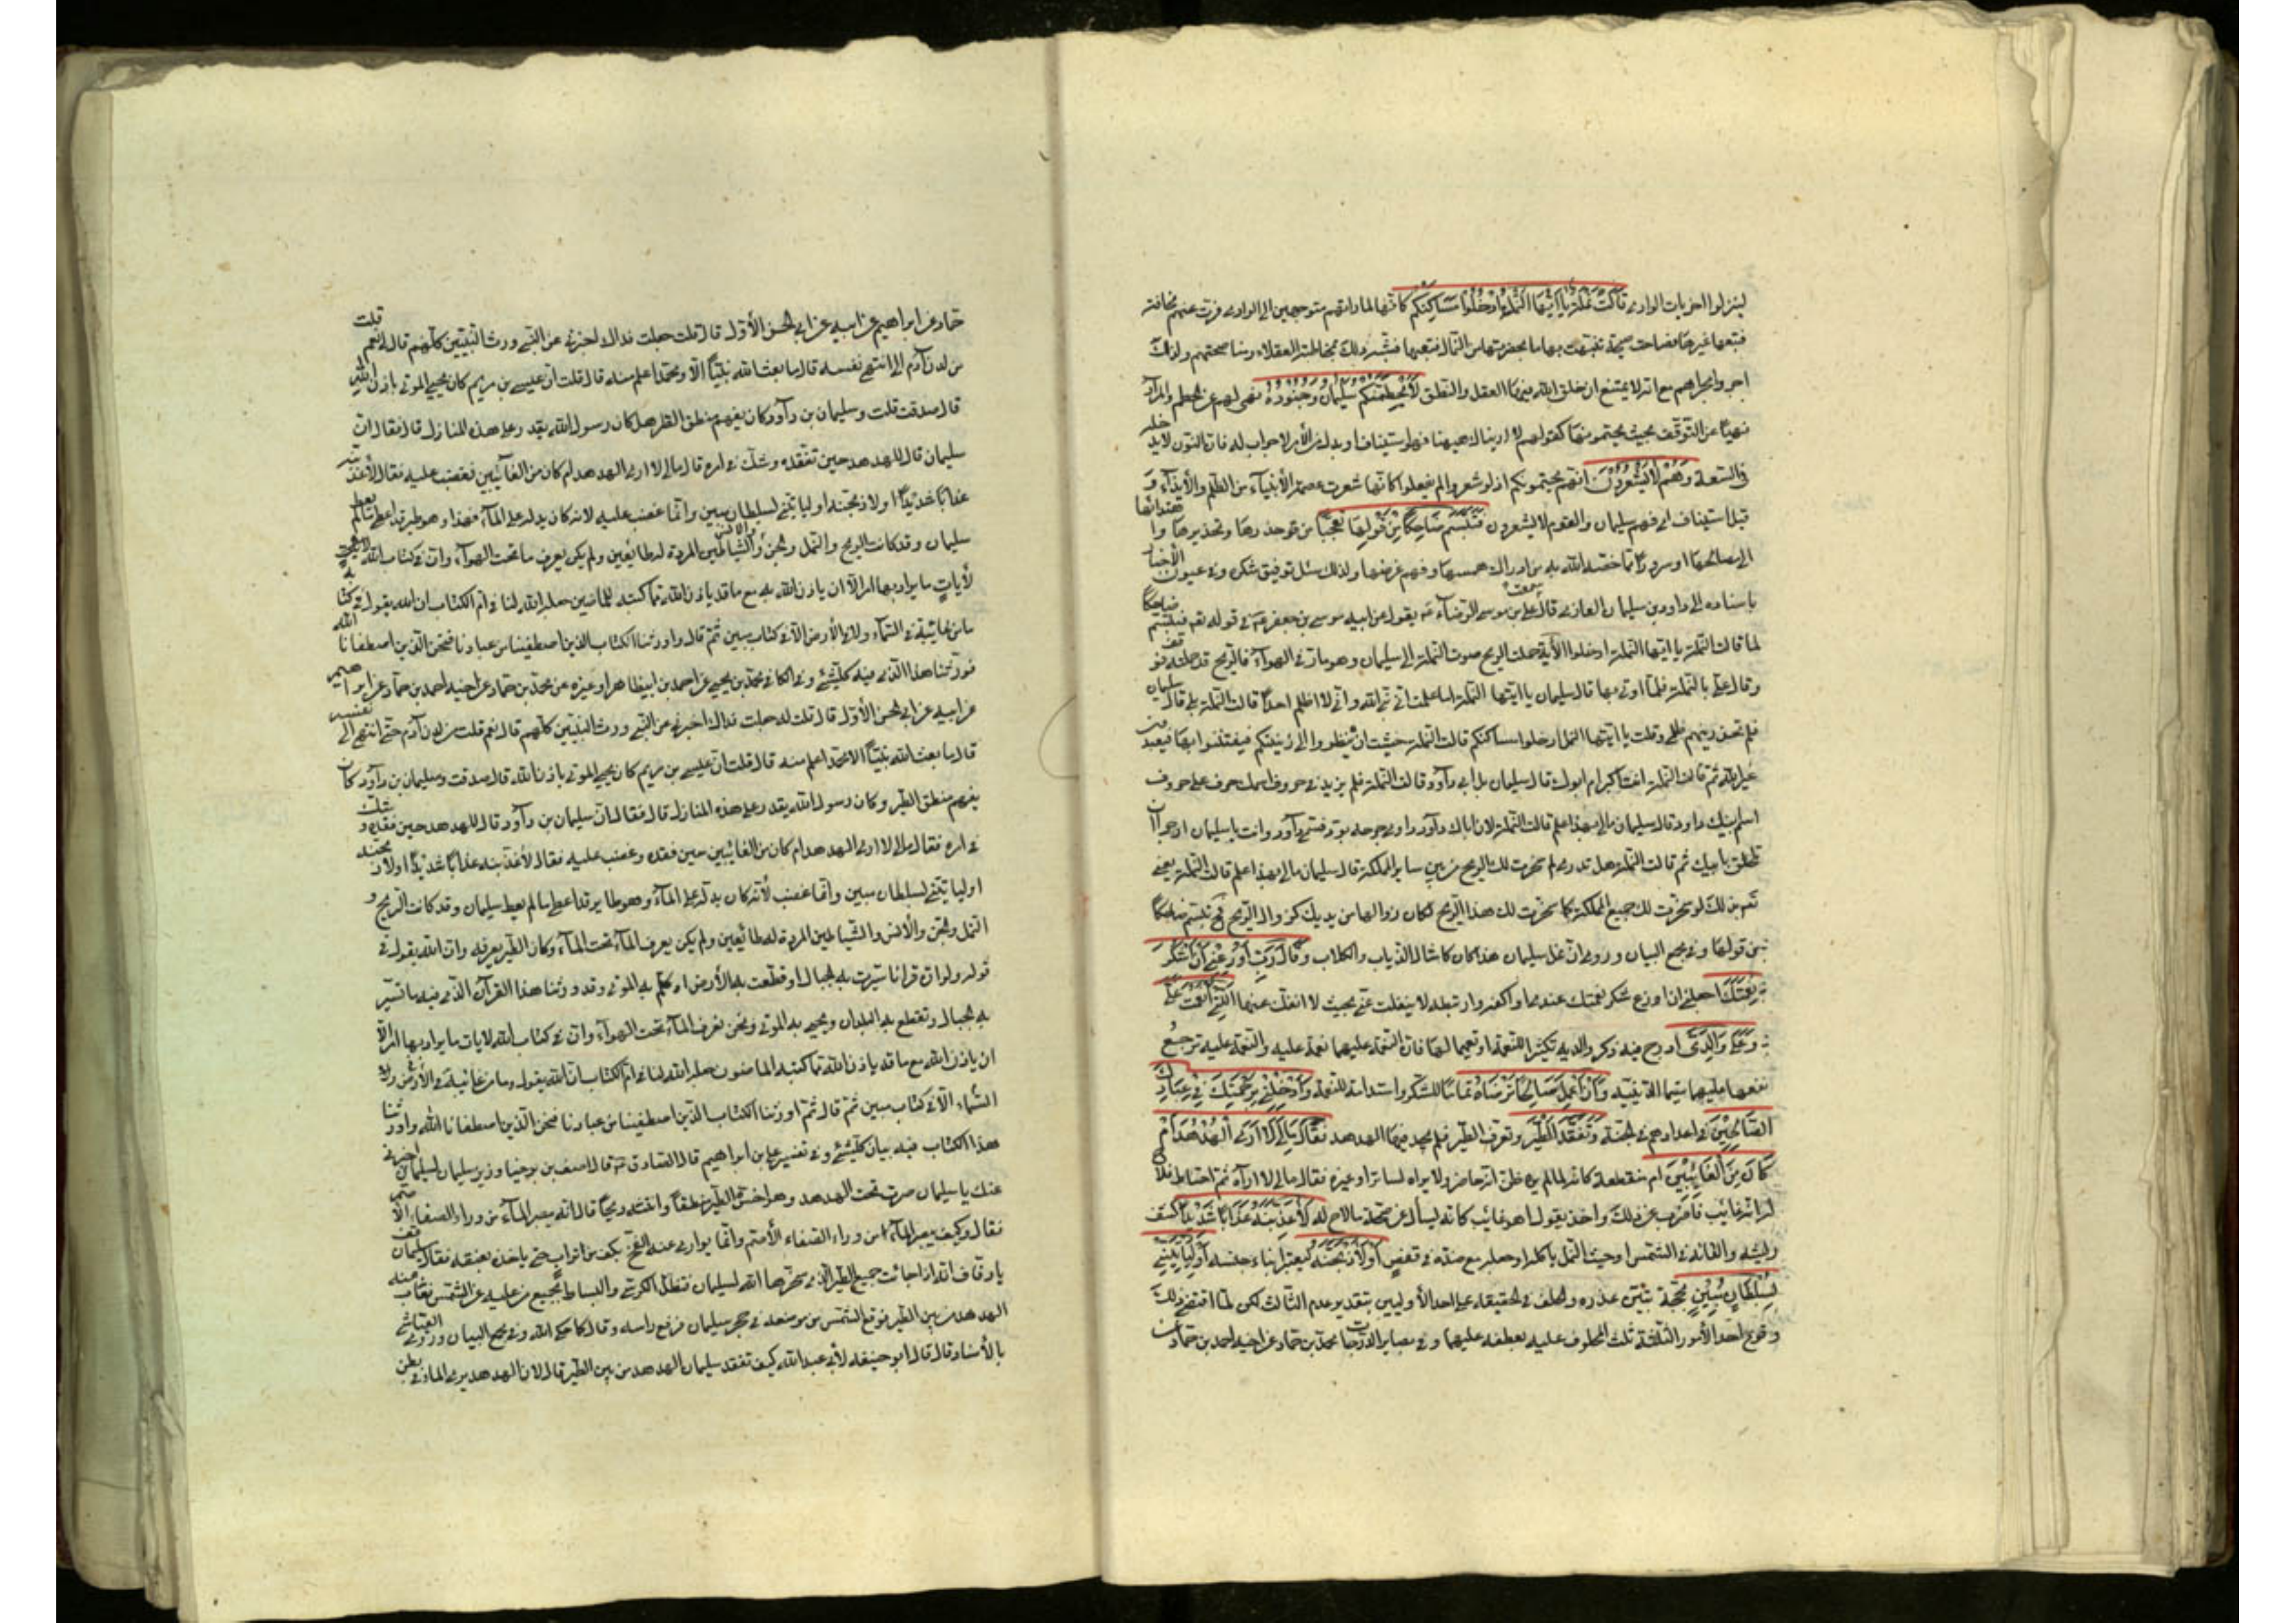 لينزلوا اخريات الوادي قالت نملة يا ايها النمل ادخلوا مساكنكم كانها لما راتهم متوجهين الى الوادي فرت عنهم مخافة
فتبعها غيرها فصاحت صيحة تنبهت بها ما بحضرتها من النمال فتبعها فشبه ذلك بمخاطبة العقلاء ومناصحتهم ولذلك
اجروا مجراهم مع انه لا يمتنع ان يخلق الله فيها العقل والنطق لا يحطمنكم سليمان وجنوده نهى لهم عن الحطم والمراد
نهيها عن التوقف بحيث يحطمونها كقولهم لا ارينك ههنا فهو استيناف او بدل من الأمر لا جواب له فان النون لا يدخله
في السعة وهم لا يشعرون انهم يحطمونكم اذ لو شعروا لم يفعلوا كانها شعرت عصمة الأنبياء من الظلم والأيذاء و
قيل استيناف اي فهم سليمان والقوم لا يشعرون فتبسم ضاحكا من قولها تعجبا من حذرها وتحذيرها واهتدائها
الى مصالحها او سرورا بما خصه الله به من ادراك همسها وفهم غرضها ولذلك سئل توفيق شكره وفي عيون الأخبار
باسناده الى داود بن سليمان الغازي قال سمعت علي بن موسى الرضا ع يقول عن ابيه موسى بن جعفر ع في قوله تع فتبسم ضاحكا
لما قالت النملة يا ايها النمل ادخلوا الأية حملت الريح صوت النملة الى سليمان وهو مار في الهواء فالريح قد حملته فوقف
وقال علي بالنملة فلما اوتي بها قال سليمان يا ايتها النملة اما علمت اني نبي الله واني لا اظلم احدا قالت النملة بلى قال سليمان
فلم تحذرينهم ظلمي وقلت يا ايها النمل ادخلوا مساكنكم قالت النملة خشيت ان ينظروا الى زينتكم فيفتتنوا بها فيعبدون
غير الله ثم قالت النملة انت اكبر ام ابوك قال سليمان بل ابي داود قالت النملة فلم يزيد في حروف اسمك حرف على حروف
اسم ابيك داود قال سليمان مالي بهذا علم قالت النملة لان اباك داود داوى جرحه بود فسمي داود وانت يا سليمان ارجوا ان
تلحق بابيك ثم قالت النملة هل تدري لم سخرت لك الريح من بين ساير المملكة قال سليمان مالي بهذا علم قالت النملة يعني
بذلك لو سخرت لك جميع المملكة كما سخرت لك هذا الريح لكان زوالها من يديك كزوال الريح فح تبسم ضاحكا
من قولها وفي مجمع البيان وروي ان نمل سليمان هذا كان كامثال الذياب والكلاب وقال رب اوزعني ان اشكر
نعمتك اجعلني ازع شكر نعمتك عندي اي اكفه وارتبطه لا ينفلت عني بحيث لا انفك عنها التي انعمت علي
وعلى والدي ادرج فيه ذكر والديه تكثيرا للنعمة او تعميما لها فان النعمة عليهما نعمة عليه والنعمة عليه ترجع
نفعها عليهما سيما الدينية وان اعمل صالحا ترضاه تماما للشكر واستدامة للنعمة وادخلني برحمتك في عبادك
الصالحين في اعدادهم في الجنة وتفقد الطير وتعرف الطير فلم يجد فيها الهدهد فقال مالي لا ارى الهدهد ام
كان من الغائبين ام منقطعة كانه لما لم يره ظن انه حاضر ولا يراه لساتر او غيره فقال مالي لا اراه ثم احتاط فلاح
له انه غايب فاضرب عن ذلك واخذ يقول اهو غايب كانه يسأل عن صحة ما لاح له لأعذبنه عذابا شديدا كنتف
ريشه والقائه في الشمس او حيث النمل ياكله او جعله مع ضده في قفص او لأذبحنه ليعتبر ابناء جنسه او ليأتيني
بسلطان مبين بحجة تبين عذره والحلف في الحقيقة على احد الأوليين بتقدير عدم الثالث لكن لما اقتضى ذلك
وقوع احد الأمور الثلثة ثلث المحلوف عليه بعطفه عليهما وفي بصاير الدرجات محمد بن حماد عن اخيه احمد بن حماد عن
حماد عن ابراهيم عن ابيه عن ابي الحسن الأول قال قلت جعلت فداك اخبرني عن النبي ورث النبيين كلهم قال لي نعم قلت
من لدن آدم الى انتهى نفسه قال ما بعث الله نبيا الا ومحمد اعلم منه قال قلت ان عيسى بن مريم كان يحيي الموتى باذن الله
قال صدقت قلت وسليمان بن داود كان يفهم منطق الطير هل كان رسول الله يقدر على هذه المنازل قال فقال ان
سليمان قال للهدهد حين تفقده وشك في امره قال مالي لا ارى الهدهد ام كان من الغائبين فغضب عليه فقال لأعذبنه
عذابا شديدا او لأذبحنه او ليأتيني بسلطان مبين وانما غضب عليه لانه كان يدله على الماء فهذا وهو طير قد اعطي ما لم يعط
سليمان وقد كانت الريح والنمل والجن والانس والشياطين المردة له طائعين ولم يكن يعرف ما تحت الهواء وان في كتاب الله
لأيات ما يراد بها امر الا ان ياذن الله به مع ما قد ياذن الله مما كتبه للماضين جعله الله لنا في ام الكتاب ان الله يقول في كتابه
ما من غائبة في السماء ولا في الأرض الا في كتاب مبين ثم قال واورثنا الكتاب الذين اصطفينا من عبادنا فنحن الذين اصطفانا الله
فورثنا هذا الذي فيه كل شئ وفي الكافي محمد بن يحيى عن احمد بن ابي طاهر او غيره عن محمد بن حماد عن اخيه احمد بن حماد عن ابراهيم
عن ابيه عن ابي الحسن الأول قال قلت له جعلت فداك اخبرني عن النبي ورث النبيين كلهم قال نعم قلت من لدن آدم حتى انتهى الى نفسه
قال ما بعث الله نبيا الا ومحمد اعلم منه قال قلت ان عيسى بن مريم كان يحيي الموتى باذن الله قال صدقت وسليمان بن داود كان
يفهم منطق الطير وكان رسول الله يقدر على هذه المنازل قال فقال ان سليمان بن داود قال للهدهد حين فقده وشك
في امره فقال مالي لا ارى الهدهد ام كان من الغائبين حين فقده وغضب عليه فقال لأعذبنه عذابا شديدا او لأذبحنه
او ليأتيني بسلطان مبين وانما غضب لأنه كان يدله على الماء وهو طاير قد اعطي ما لم يعط سليمان وقد كانت الريح و
النمل والجن والأنس والشياطين المردة له طائعين ولم يكن يعرف الماء تحت الماء وكان الطير يعرفه وان الله يقول في
قوله ولو ان قرانا سيرت به الجبال او قطعت به الأرض او كلم به الموتى وقد ورثنا هذا القرآن الذي فيه ما تسير
به الجبال وتقطع به البلدان ويحيي به الموتى ونحن نعرف الماء تحت الهواء وان في كتاب الله لايات ما يراد بها امر الا
ان ياذن الله مع ما قد ياذن الله مما كتبه الماضون جعله الله لنا في ام الكتاب ان الله يقول وما من غائبة في الأرض ولا في
السماء الا في كتاب مبين ثم قال ثم اورثنا الكتاب الذين اصطفينا من عبادنا فنحن الذين اصطفانا الله واورثنا
هذا الكتاب فيه بيان كل شئ وفي تفسير علي بن ابراهيم قال الصادق ع قال اصف بن برخيا وزير سليمان لسليمان اخبرني
عنك يا سليمان صرت تحب الهدهد وهو اخس الطير منطقا وانتنه ريحا قال انه يبصر الماء من وراء الصفاء الأصم
فقال وكيف يبصر الماء من وراء الصفاء الأصم وانما يوارى عنه الفخ بكف من تراب حتى ياخذ بعنقه فقال سليمان
يا وقاف انه اذا جائت جميع الطير الذي سخرها الله لسليمان فتظل الكرسي والبساط بجميع من عليه عن الشمس فغاب عنه
الهدهد من بين الطير فوقع الشمس من موضعه في حجر سليمان فرفع راسه وقال كما حكى الله وفي مجمع البيان وروى العياشي
بالأسناد قال قال ابو حنيفة لأبي عبد الله كيف تفقد سليمان الهدهد من بين الطير قال لان الهدهد يرى الماء في بطن